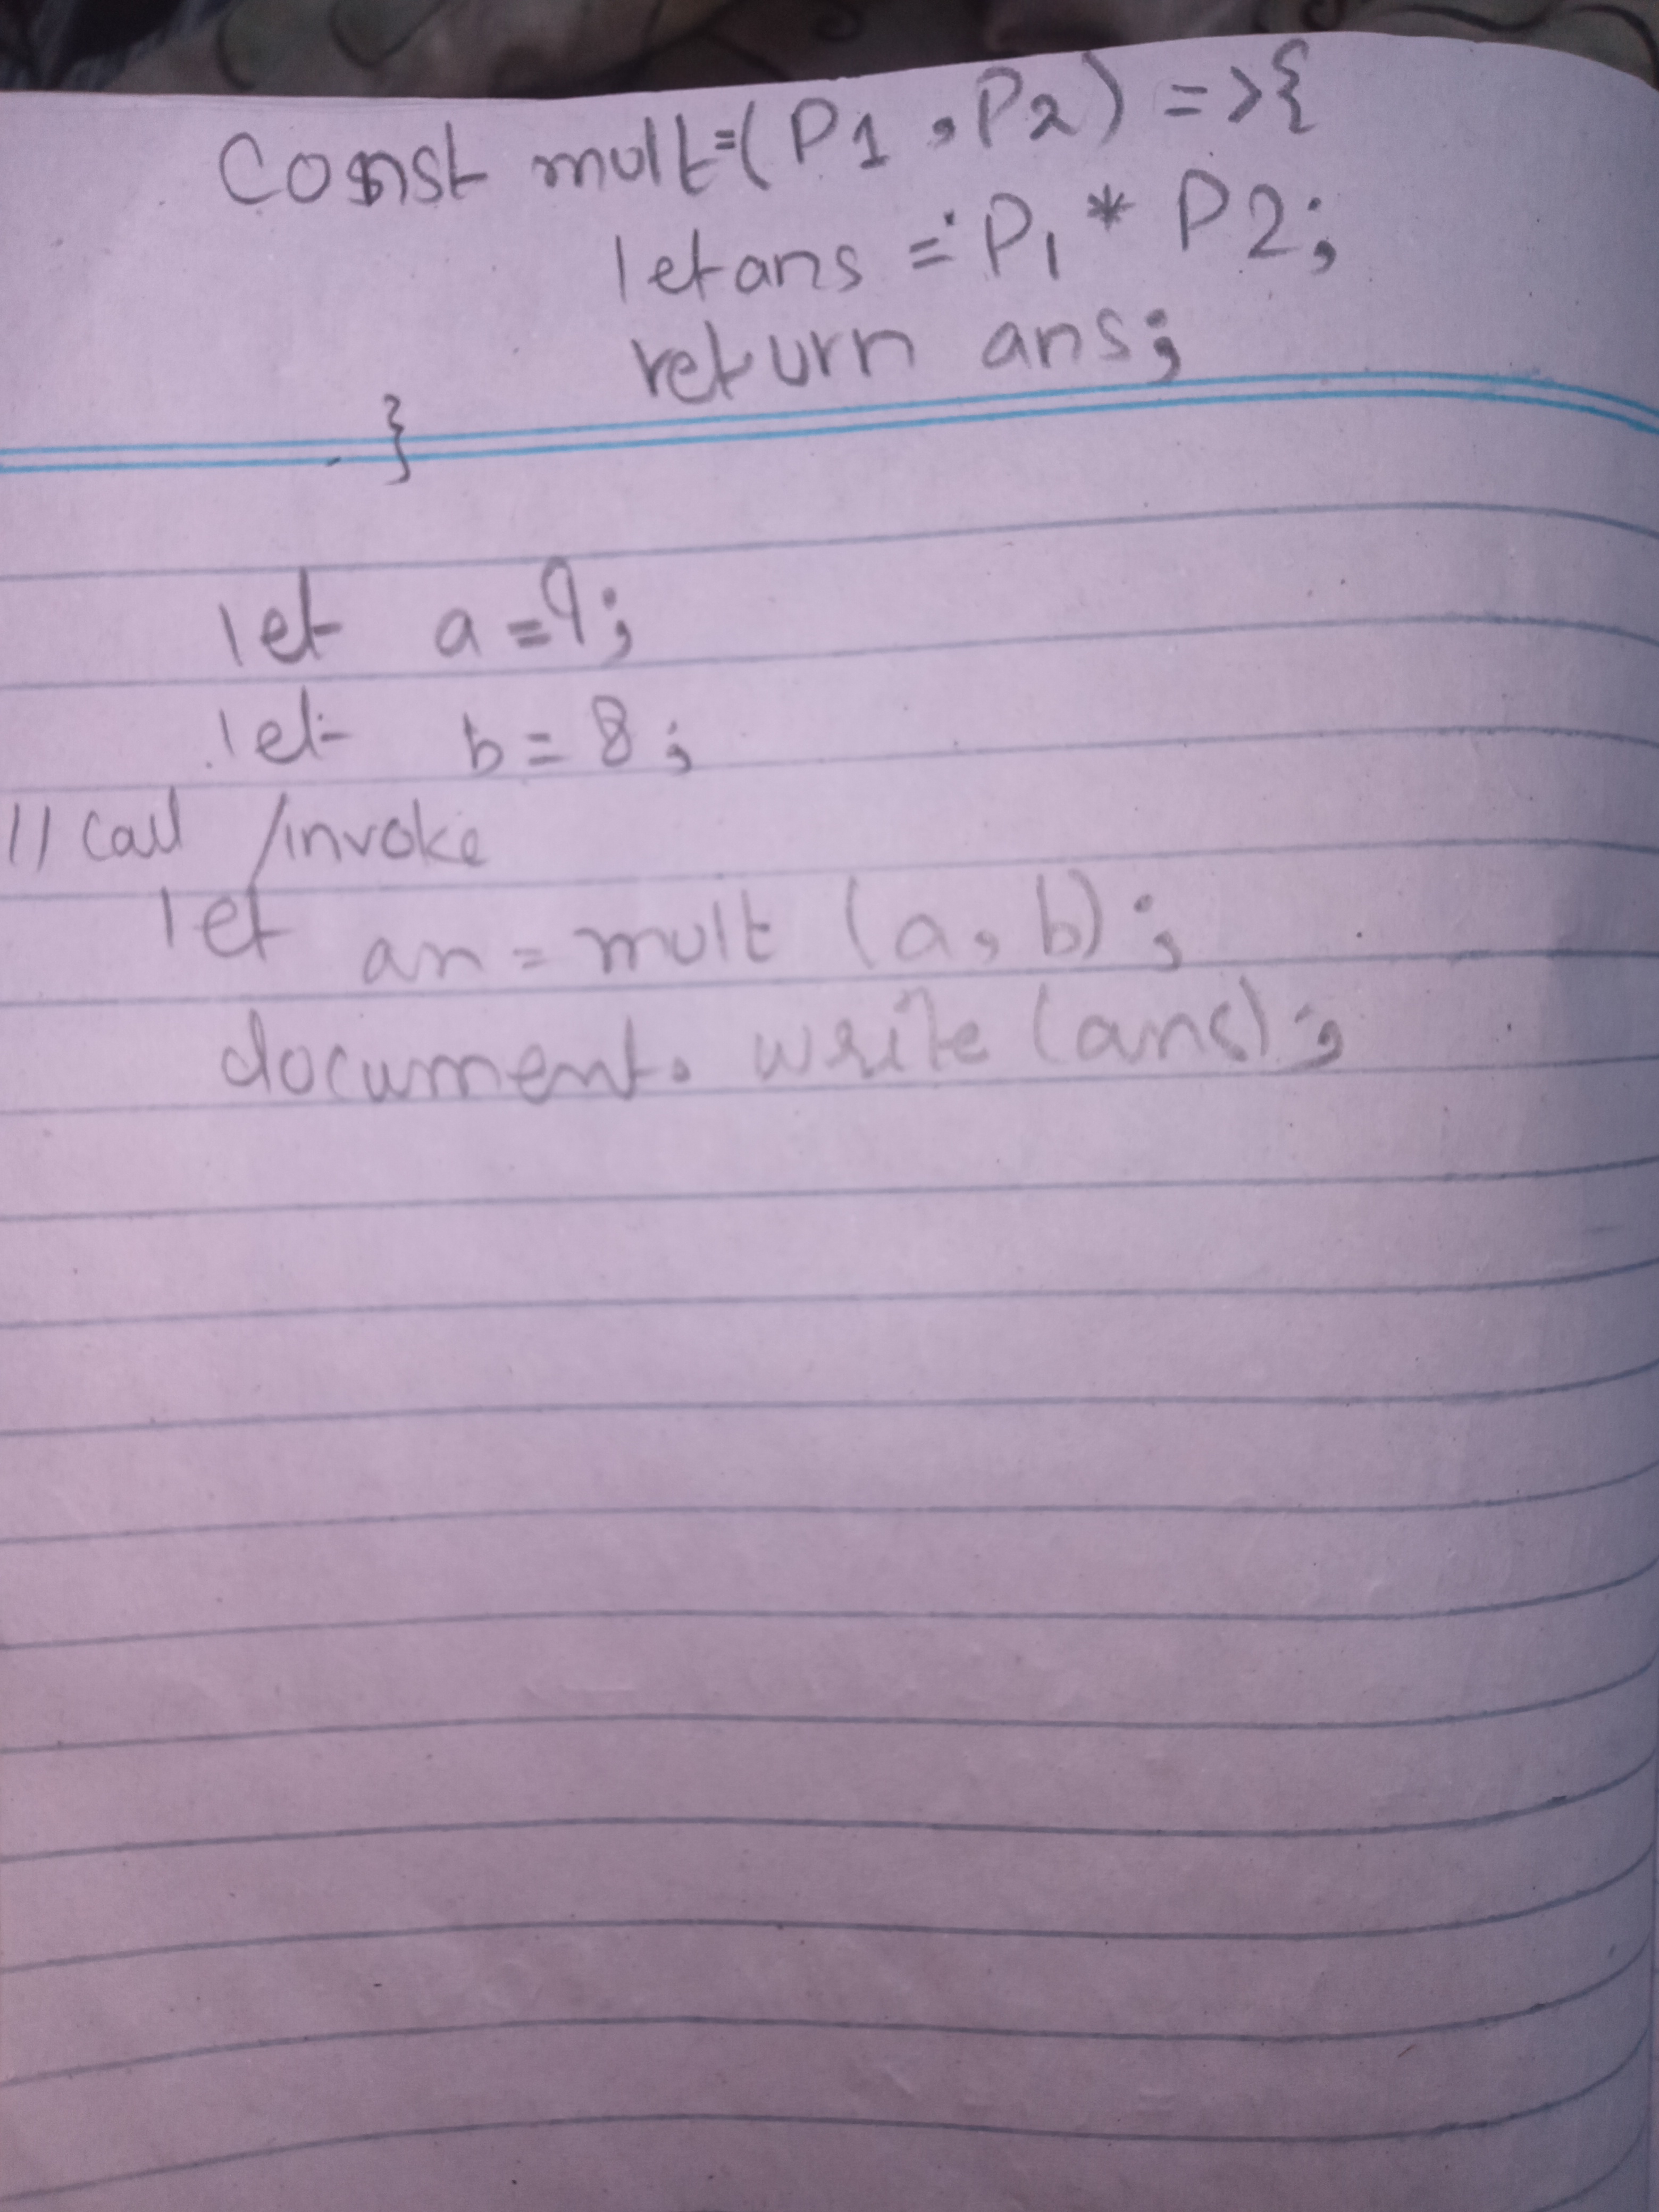 Const mult=(P1,P2) =>{
let ans = P1 * P2;
return ans;
}
let a=9;
let b=8;
// Call /invoke
let an = mult (a, b);
document. write (ans);